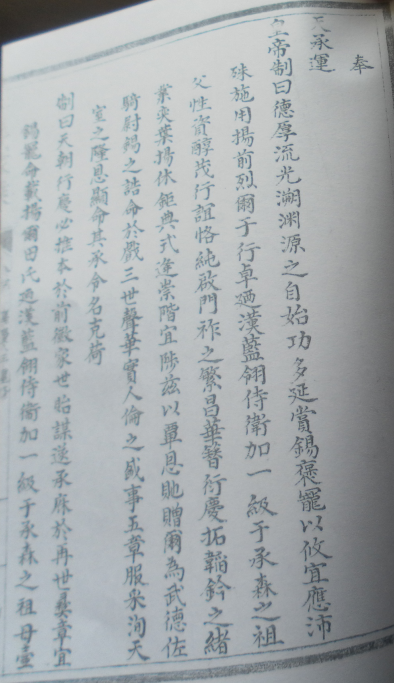 奉
天承運
皇帝制曰德厚流光溯淵源之自始功多延賞錫褒寵以攸宜應沛
殊施用揚前烈爾于行卓迺漢藍翎侍衛加一級于承森之祖
父性資醇茂行誼恪純啟門祚之繁昌華簪衍慶拓韜鈐之緒
業奕葉揚休鉅典式逢崇階宜陟茲以覃恩貤贈爾為武德佐
騎尉錫之誥命於戲三世聲華實人倫之盛事五章服采洵天
室之隆恩顯命其承令名克荷
制曰天朝行慶必推本於前徽家世貽謀遂承庥於再世彝章宜
錫寵命載揚爾田氏迺漢藍翎侍衛加一級于承森之祖母壼